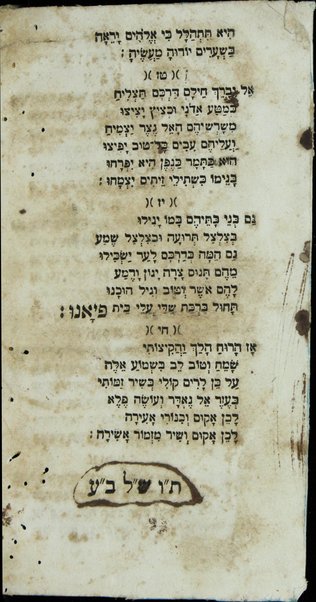 היא תתהלל כי אלהים יראה
בשערים יורוה מעשיה :
)( טז )(
אל יברך חילם דרכם תצליח
כמטע אדני וכציץ יציצו
משרשיהם האל נצר יצמיח
ועליהם עבים כל־טוב יפיצו
הוא כתמר כגפן היא יפרחו
בנימו כשתילי זיתים יצמחו :
)( יז )(
גם בני בתיהם כמו יגילו
בצלצל תרועה ובצלצל שמע
גם המה בדרכם לעד ישכילו
מהם תנוס צרה יגון ודמע
להם אשר וטוב וגיל הוכנו
תחול ברכת שדי עלי בית פיאנו :
)( חי )(
אז הרוח הלך והקיצותי
שמח וטוב לב בשמוע אלה
על כן לרים קולי בשיר זמותי
בעזר אל נאדר ועושה פלא
לכן אקום וכנורי אעירה
לכן אקום ושיר מזמור אשירה :
ת״ו ש״ל ב״ע